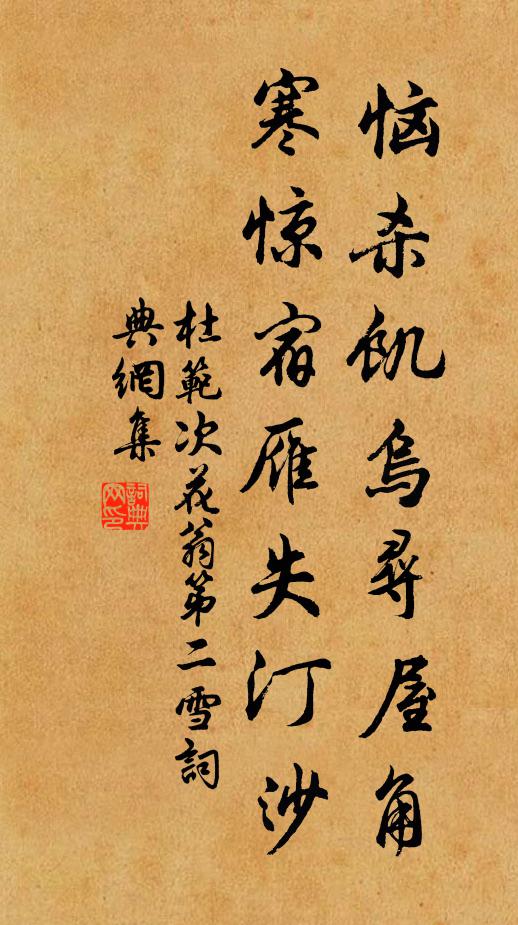 恼杀饥乌寻屋角
寒惊宿雁失汀沙
杜範次花翁第二雪詞
典網集
詞典
网印